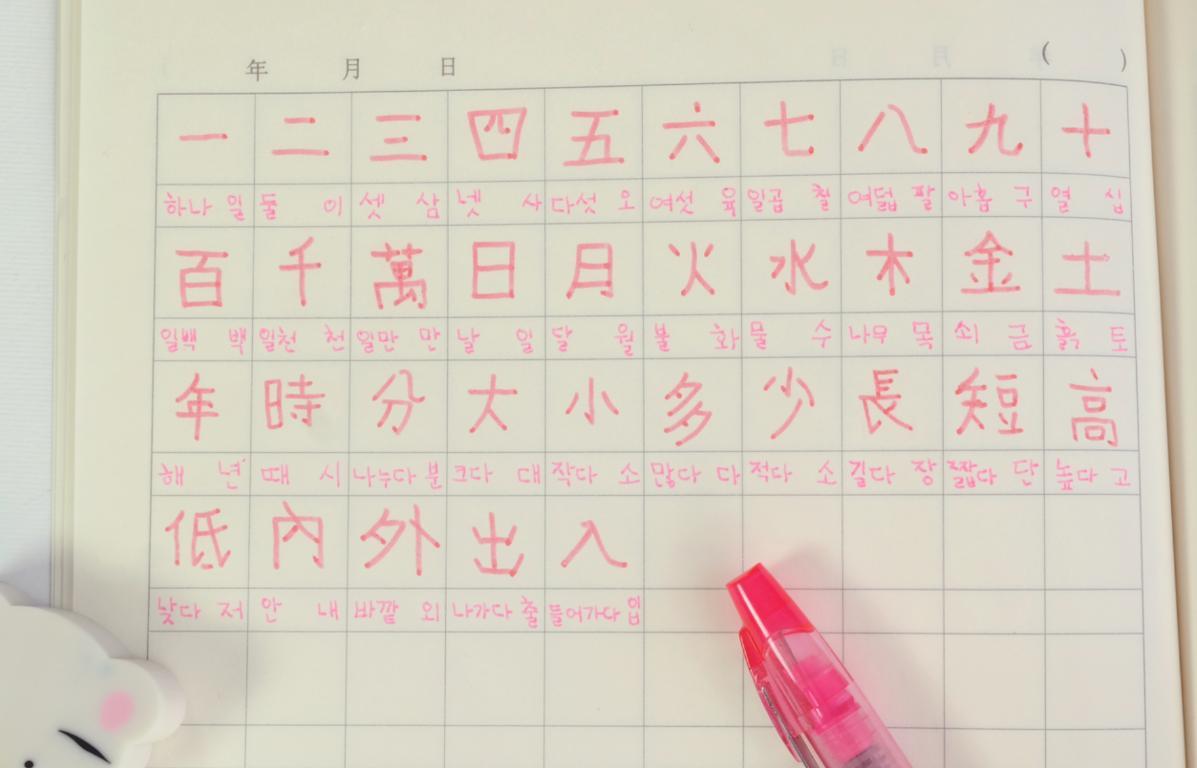 年 月 日 ( )
一 二 三 四 五 六 七 八 九 十
하나 일 둘 이 셋 삼 넷 사 다섯 오 여섯 육 일곱 칠 여덟 팔 아홉 구 열 십
百 千 萬 日 月 火 水 木 金 土
일백 백 일천 천 일만 만 날 일 달 월 불 화 물 수 나무 목 쇠 금 흙 토
年 時 分 大 小 多 少 長 短 高
해 년 때 시 나누다 분 크다 대 작다 소 많다 다 적다 소 길다 장 짧다 단 높다 고
低 內 外 出 入
낮다 저 안 내 바깥 외 나가다 출 들어가다 입